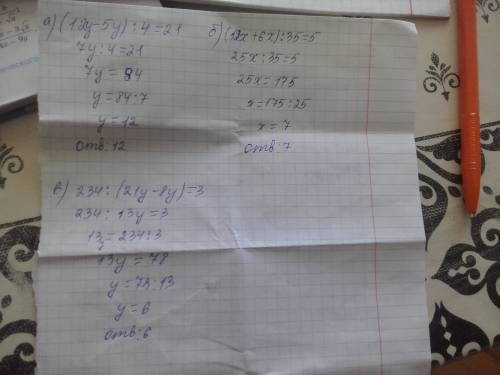 а) (12y-5y):4=21
7y:4=21
7y=84
y=84:7
y=12
отв:12
б) (19x+6x):35=5
25x:35=5
25x=175
x=175:25
x=7
отв:7
в) 234:(21y-8y)=3
234:13y=3
13y=234:3
13y=78
y=78:13
y=6
отв:6